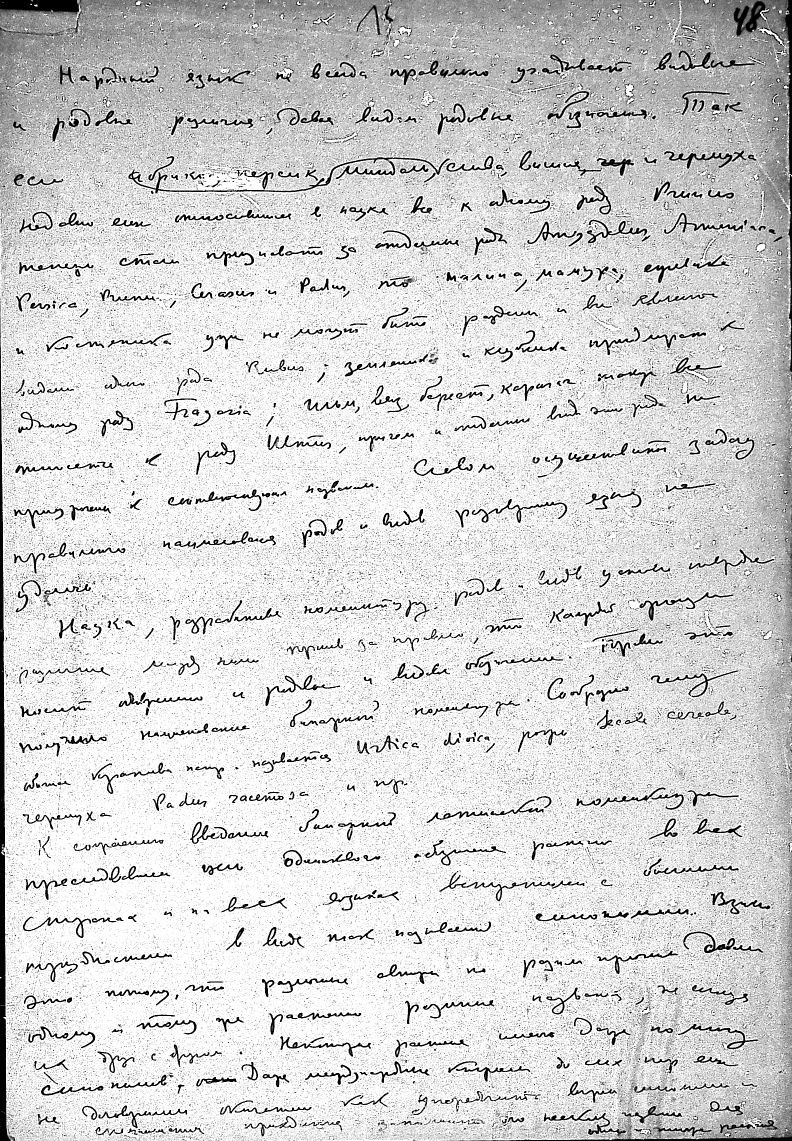 15
48
Народный язык не всегда правильно угадывает видовые
и родовые различия, давая видам родовые обозначения. Так
если абрикос, персик, миндаль, слива, вишня, и черемуха
недавно еще относившиеся в науке все к одному роду Prunus
теперь стали признавать за отдельные рода Amygdalus, Armeniaca,
Persica, Prunus, Cerasus и Padus, то малина, мамура, ежевика
и костяника уже не могут быть разделены и все являются
видами одного рода Rubus; земляника и клубника принадлежат к
одному роду Fragaria; ильм, вяз, берест, карагач также все
относятся к роду Ulmus, причем и отдельные виды этого рода не
приурочены к соответствующим названиям. Словом осуществить задачу
правильного наименования родов и видов разговорному языку не
удалось.
Наука, разрабатывая номенклатуру родов и видов установив твердое
различие между ними приняв за правило, что каждый организм
носит одновременно и родовое и видовое обозначение. Правило это
получило наименование бинарной номенклатуры. Сообразно чему
обыкн. крапива напр. называется Urtica dioica, рожь Secale cereale,
черемуха Padus racemosa и пр.
К сожалению введение бинарной латинской номенклатуры
преследовавшее цель одинакового обозначения растений во всех
странах и на всех языках встретилось с большими
трудностями в виде так называемой синонимии. Взялось
это потому, что различные авторы по разным причинам давали
одному и тому же растению различные названия, не зная
их друг с другом. Некоторые растения имеют даже по многу
синонимов, даже международные конгрессы до сих пор еще
не договорились окончательно как упорядочить
специалистам приходится запоминать по несколько названий для